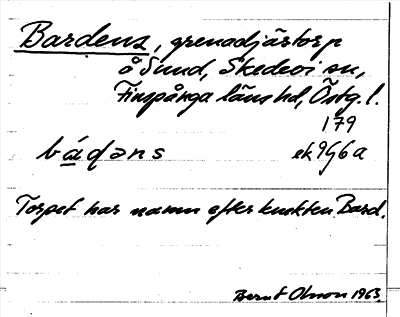 Bardens, grenadjärstorp
å Sund, Skedevi sn,
Finspånga läns hd, Östg. l.
179
bádəns ek 9G6a
Torpet har namn efter knekten Bard.
Bernt Olsson 1963.